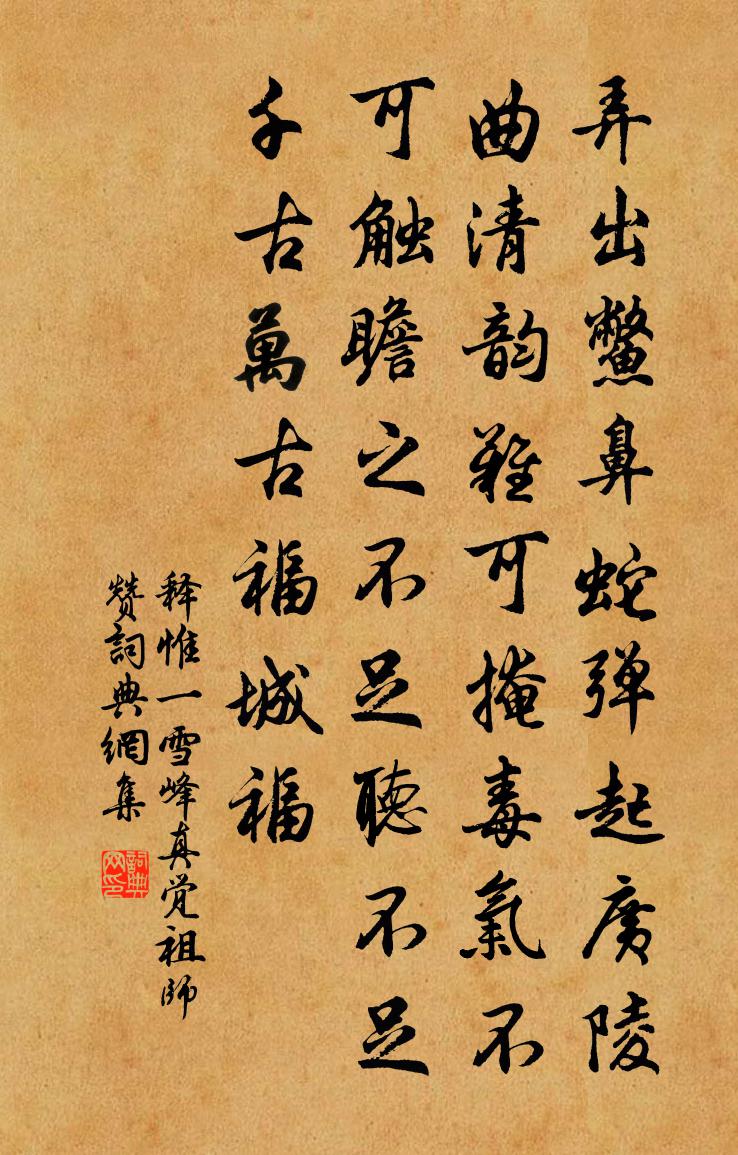 弄出鱉鼻蛇弹起廣陵
曲清韵難可掩毒氣不
可触瞻之不足聽不足
千古萬古福城福
释惟一雪峰真觉祖師
赞詞典網集
詞典網印